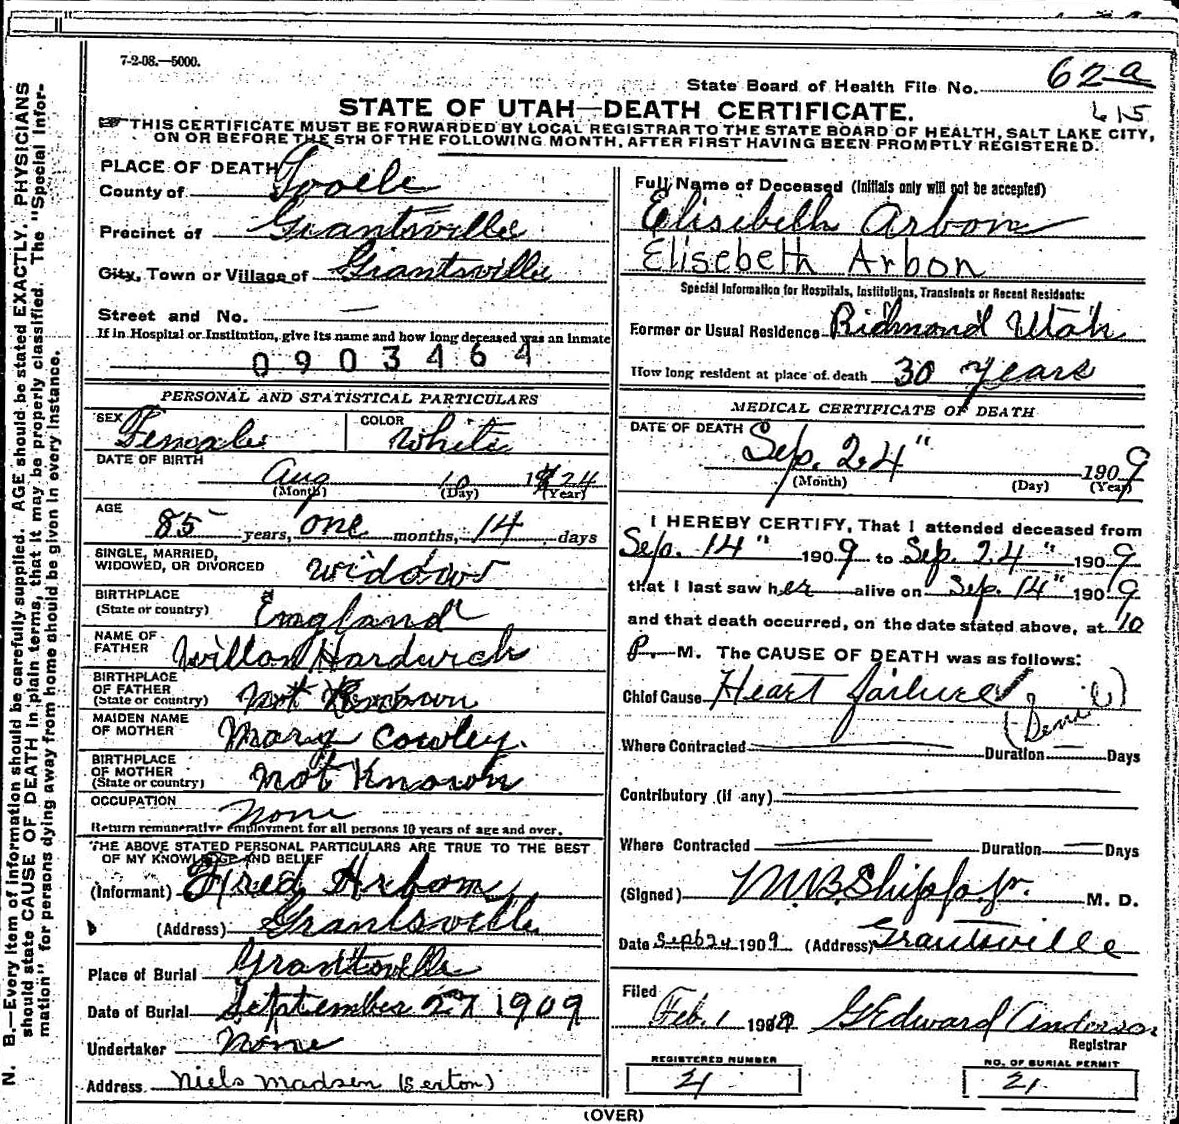 7-2-08.—5000.
State Board of Health File No. 62 a
STATE OF UTAH—DEATH CERTIFICATE.
615
THIS CERTIFICATE MUST BE FORWARDED BY LOCAL REGISTRAR TO THE STATE BOARD OF HEALTH, SALT LAKE CITY,
ON OR BEFORE THE 5TH OF THE FOLLOWING MONTH, AFTER FIRST HAVING BEEN PROMPTLY REGISTERED.
PLACE OF DEATH
County of Tooele
Precinct of Grantsville
City, Town or Village of Grantsville
Street and No. —
If in Hospital or Institution, give its name and how long deceased was an inmate
0903464
PERSONAL AND STATISTICAL PARTICULARS
SEX Female COLOR White
DATE OF BIRTH
Aug 10 1824
(Month) (Day) (Year)
AGE
85 years, one months, 14 days
SINGLE, MARRIED,
WIDOWED, OR DIVORCED widow
BIRTHPLACE
(State or country) England
NAME OF
FATHER Hardwich
BIRTHPLACE
OF FATHER
(State or country) Not Known
MAIDEN NAME
OF MOTHER Mary Cowley.
BIRTHPLACE
OF MOTHER
(State or country) Not Known
OCCUPATION None
Return remunerative employment for all persons 10 years of age and over.
THE ABOVE STATED PERSONAL PARTICULARS ARE TRUE TO THE BEST
OF MY KNOWLEDGE AND BELIEF
(Informant) Fred Arbon
(Address) Grantsville
Place of Burial Grantsville
Date of Burial September 27 1909
Undertaker None
Address Niels Madsen (Sexton)
Full Name of Deceased (Initials only will not be accepted)
Elisibeth Arbon
Elisebeth Arbon
Special Information for Hospitals, Institutions, Transients or Recent Residents:
Former or Usual Residence Richmond Utah
How long resident at place of death 30 years
MEDICAL CERTIFICATE OF DEATH
DATE OF DEATH
Sep. 24" 1909
(Month) (Day) (Year)
I HEREBY CERTIFY, That I attended deceased from
Sep. 14" 1909 to Sep. 24" 1909
that I last saw her alive on Sep. 14" 1909
and that death occurred, on the date stated above, at 10
P. M. The CAUSE OF DEATH was as follows:
Chief Cause Heart failure
Where Contracted Duration — Days
Contributory (if any)
Where Contracted Duration — Days
(Signed) M. D.
Date Sept 24 1909 (Address) Grantsville
Filed
Feb. 1 190 G Edward Anderson
Registrar
REGISTERED NUMBER
21
NO. OF BURIAL PERMIT
21
(OVER)
N. B.—Every item of information should be carefully supplied. AGE should be stated EXACTLY. PHYSICIANS
should state CAUSE OF DEATH in plain terms, that it may be properly classified. The "Special Infor-
mation" for persons dying away from home should be given in every instance.